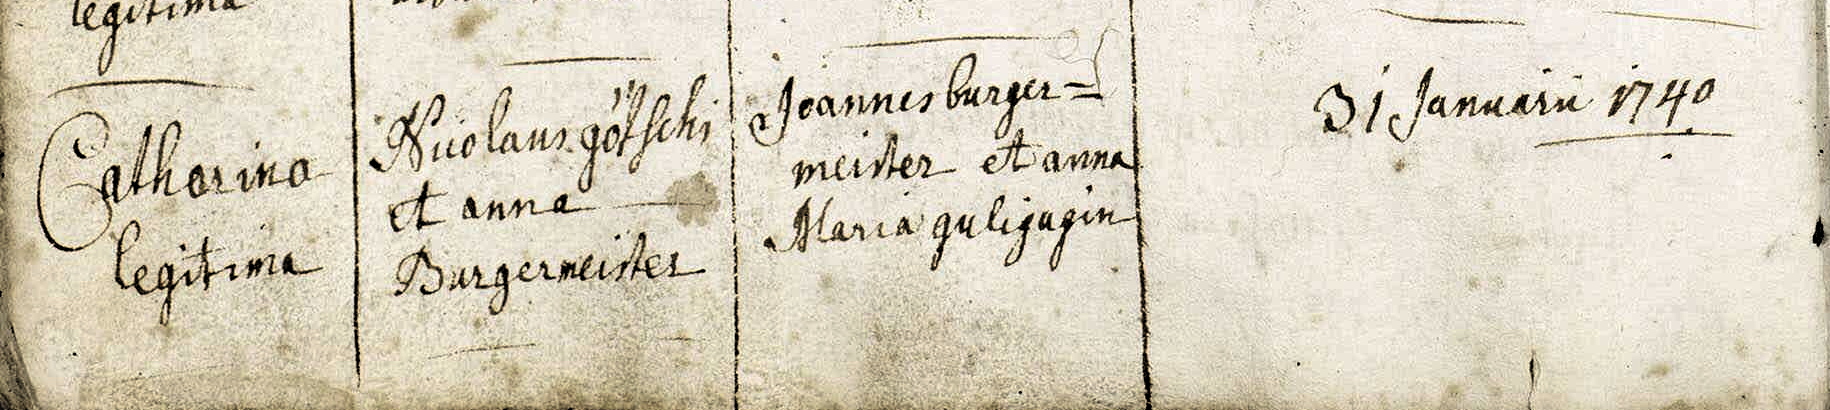 legitima
Catharina
legitima
Nicolaus götschi
et anna
Burgermeister
Joannes burger=
meister et anna
Maria guligagin
31 Januarii 1740